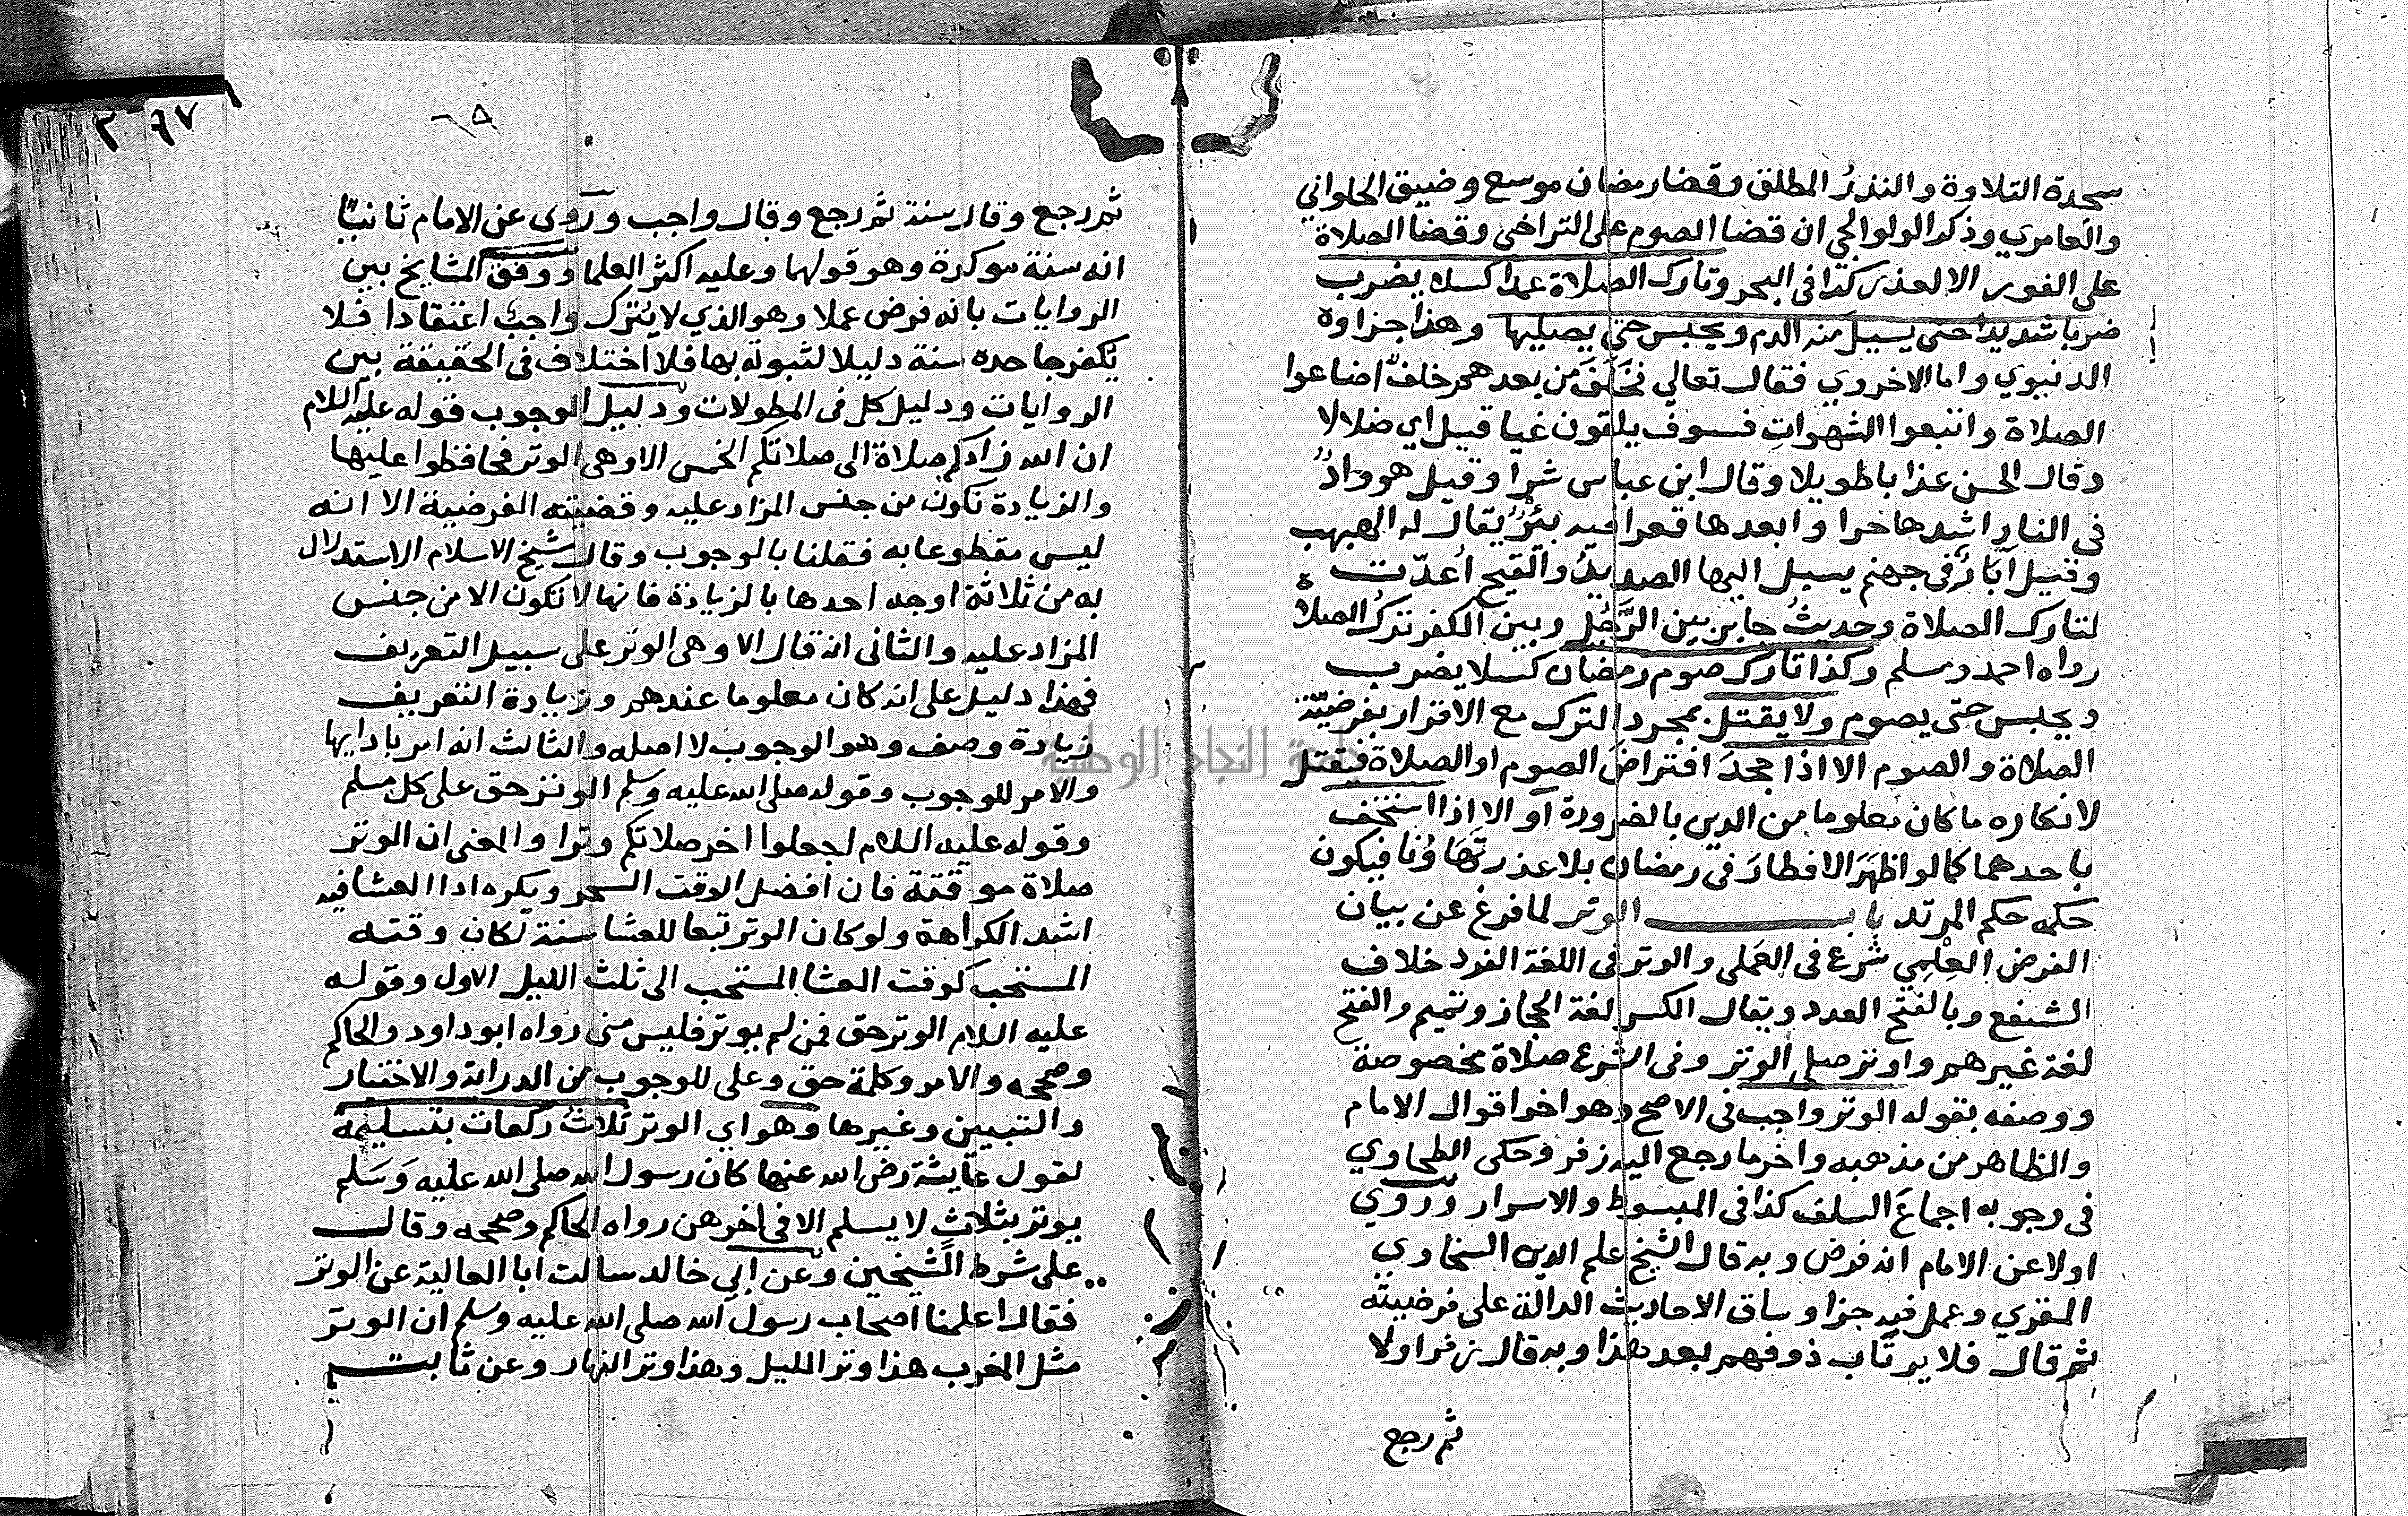 سجدة التلاوة والنذرُ المطلق وقضا رمضان موسع وضيق الحلواني
والعامري وذكر الولوالجي ان قضا الصوم على التراخي وقضا الصلاة
على الفور الا لعذر كذا في البحر وتارك الصلاة عمدا كسلا يضرب
ضربا شديدا حتى يسيل منه الدم ويحبس حتى يصليها وهذا جزاوه
الدنيوي واما الاخروي فقال تعالي فخَلَفَ من بعدهم خلفٌ اضاعوا
الصلاة واتبعوا الشهواتِ فسوف يلقون غيا قيل اي ضلالا
وقال الحسن عذابا طويلا وقال ابن عباس شرا وقيل هو وادٌ
في النار اشدها حرا وابعدها قعرا فيه بئرٌ يقال له الهبهب
وقيل آبارٌ في جهنم يسيل اليها الصديدُ والقيح أعدّت
لتارك الصلاة وحديثُ جابر بين الرَّجُلِ وبين الكفر تركُ الصلاة
رواه احمد ومسلم وكذا تارك صوم رمضان كسلا يضرب
ويحبس حتى يصوم ولا يقتل بمجرد الترك مع الاقرار بفرضيّة
الصلاة والصوم الا اذا جحدَ افتراضَ الصوم او الصلاة فيقتل
لانكاره ما كان معلوما من الدين بالضرورة او الا اذا استخف
باحدهما كما لو اظهَرَ الافطارَ في رمضان بلا عذر تهاوُنا فيكون
حكمه حكم المرتد باب الوتر لما فرغ عن بيان
الفرض العِلْمِي شرع في العَملي والوتر في اللغة الفرد خلاف
الشفع وبالفتح العدد ويقال الكسر لغة الحجاز وتميم والفتح
لغة غيرهم واوتر صلى الوتر وفي الشرع صلاة مخصوصة
ووصفه بقوله الوتر واجب في الاصح وهو اخر اقوال الامام
والظاهر من مذهبه واخر ما رجع اليه زفر وحكى الطحاوي
في وجوبه اجماعَ السلف كذا في المبسوط والاسرار ورُوي
اولا عن الامام انه فرض وبه قال الشيخ علم الدين السخاوي
المقري وعمل فيه جزا وساق الاحاديث الدالة على فرضيته
ثم قال فلا يرتاب ذو فهم بعد هذا وبه قال زفر اولا
ثم رجع
٦٨
٢٠٦٧
ثم رجع وقال سنة ثم رجع وقال واجب ورُوى عن الامام ثانيًا
انه سنة موكدة وهو قولهما وعليه اكثر العلما ووفق المشايخ بين
الروايات بانه فرض عملا وهو الذي لا يُترك واجبٌ اعتقادا فلا
يكفر جاحده سنة دليلا لثبوته بها فلا اختلاف في الحقيقة بين
الروايات ودليل كل في المطولات ودليل الوجوب قوله عليه السلام
ان الله زادكم صلاة الى صلاتكم الخمس الا وهي الوتر فحافظوا عليها
والزيادة تكون من جنس المزاد عليه وقضيته الفرضية الا انه
ليس مقطوعا به فقلنا بالوجوب وقال شيخ الاسلام الاستدلال
به من ثلاثة اوجه احدها بالزيادة فانها لا تكون الا من جنس
المزاد عليه والثاني انه قال الا وهي الوتر على سبيل التعريف
فهذا دليل على انه كان معلوما عندهم وزيادة التعريف
زيادة وصف وهو الوجوب لا اصله والثالث انه امر بادايها
والامر للوجوب وقوله صلى الله عليه وسلم الوتر حق على كل مسلم
وقوله عليه السلام اجعلوا اخر صلاتكم وترا والمعنى ان الوتر
صلاة موقتة فان افضل الوقت السحر ويكره ادا العشا فيه
اشد الكراهة ولو كان الوتر تبعا للعشا سنة لكان وقته
المستحب كوقت العشا المستحب الى ثلث الليل الاول وقوله
عليه السلام الوتر حق فمن لم يوتر فليس مني رواه ابو داود والحاكم
وصححه والامر وكلمة حق وعلى للوجوب من الدراية والاختيار
والتبيين وغيرها وهو اي الوتر ثلاث ركعات بتسليمة
لقول عايشة رضي الله عنها كان رسول الله صلى الله عليه وَسَلم
يوتر بثلاثٍ لا يسلم الا في اخرهن رواه الحاكم وصححه وقال
على شرط الشيخين وعن ابي خالد سالت ابا العالية عن الوتر
فقال اعلمنا اصحاب رسول الله صلى الله عليه وسلم ان الوتر
مثل المغرب هذا وتر الليل وهذا وتر النهار وعن ثابت
جامعة النجاح الوطنية